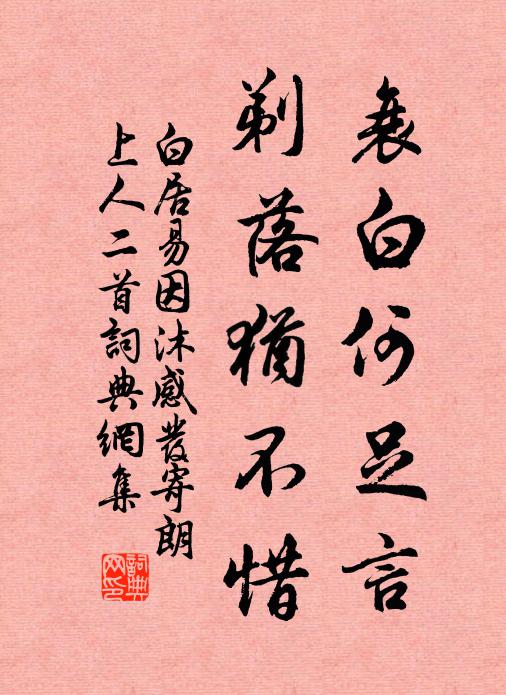 衰白何足言
剃落猶不惜
白居易因沐感發寄朗
上人二首詞典網集
詞典
网印